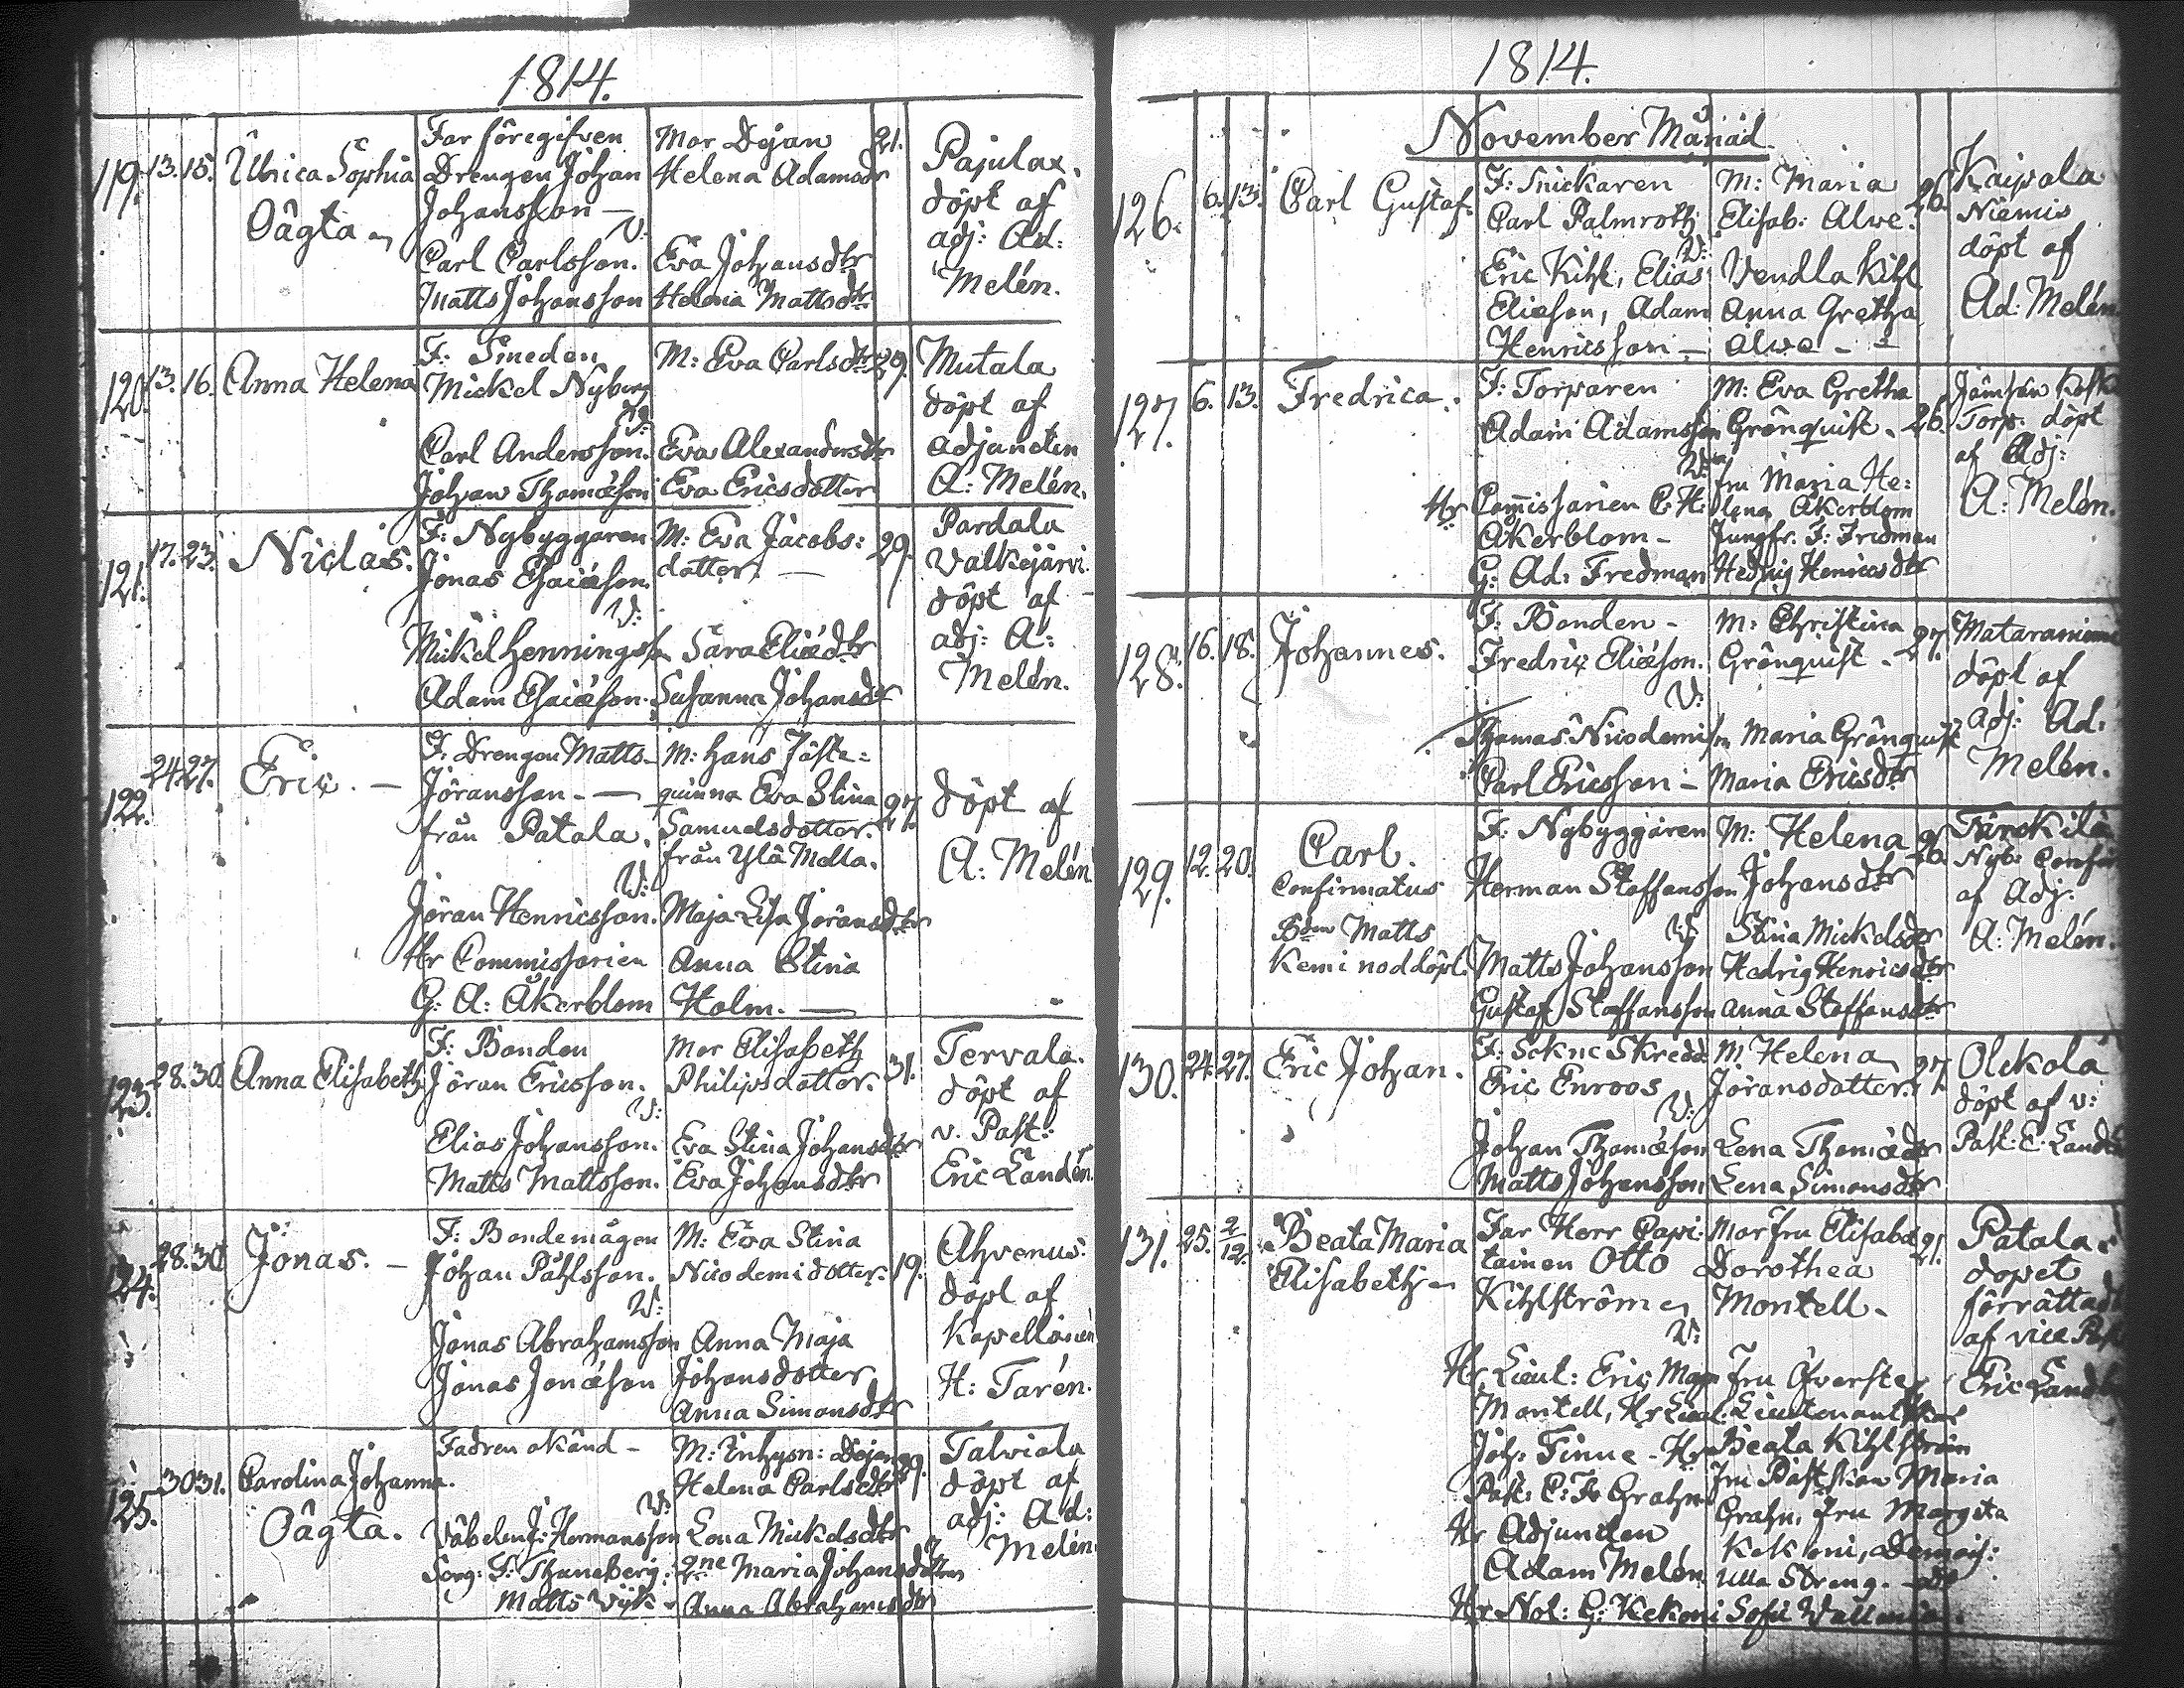 1814.
119. 13. 15. Ulrica Sophia
Oägta
Far föregifven
Drengen Johan
Johansson —
V:
Carl Carlsson.
Matts Johansson
Mor Dejan
Helena Adamsdr
Eva Johansdtr
Helena Mattsdtr
21.
Pajulax.
döpt af
adj: Ad:
Melén.
120. 13. 16. Anna Helena
F: Smeden
Mickel Nyberg
V:
Carl Andersson.
Johan Thomæson
M: Eva Carlsdtr
Eva Alexandersdtr
Eva Ericsdotter
29.
Mutala
döpt af
adjuncten
A: Melén.
121. 17. 23. Niclas.
F: Nybyggaren
Jonas Esaiæson.
V:
Mickel Henningss
Adam Esaiæson.
M: Eva Jacobs:
dotter. —
Sara Eliædtr
Susanna Johansdr
29.
Pardala
Valkejärvi.
döpt af
adj: A:
Melén.
122. 24. 27. Eric. —
F. Drengen Matts
Jöransson. —
från Patala.
V:
Jöran Henricsson.
Hr Commissarien
G: A: Åkerblom
M: hans Fäste=
quinna Eva Stina
Samuelsdotter.
från Ylä Mella.
Maja Lisa Jöransdtr
Anna Stina
Holm. —
27.
döpt af
A: Melén
123. 28. 30. Anna Elisabeth
F: Bonden
Jöran Ericsson.
V:
Elias Johansson.
Matts Mattsson.
Mor Elisabeth
Philipsdotter.
Eva Stina Johansdtr
Eva Johansdtr
31.
Tervala.
döpt af
v. Past:
Eric Landén.
124. 28. 30. Jonas. —
F: Bondemågen
Johan Påhlsson.
V:
Jonas Abrahamsson
Jonas Jonæson
M: Eva Stina
Nicodemidotter.
Anna Maja
Johansdotter
Anna Simonsdtr
19.
Ahvenus.
döpt af
Kapellanen
H: Tarén.
125. 30. 31. Carolina Johanna.
Oägta.
Fadren okänd —
V:
Matts Vijk
M: Inhysn: Dejan
Helena Carlsdtr
Lena Mickelsdtr
Maria Johansdotter
Anna Abrahamsdtr
29.
Talviala
döpt af
adj: Ad:
Melén
1814.
November Månad.
126. 6. 13. Carl Gustaf.
F: Snickaren
Carl Palmroth
V:
Eric Kihl, Elias
Eliæson, Adam
Henricsson —
M: Maria
Elisab: Alwe.
Vendla Kihl
Anna Gretha
Alwe —
26.
Kaipola
Niemis
döpt af
Ad: Melén
127. 6. 13. Fredrica.
F: Torparen
Adam Adamsson
V:
Hr Commissarien C. H:
Åkerblom —
G: Ad: Fredman
M: Eva Gretha
Grönquist.
fru Maria He:
lena Åkerblom
Jungfr. F: Fredman
Hedvig Henricsdtr
26.
Torp. döpt
af Adj:
A: Melén.
128. 16. 18. Johannes.
F: Bonden —
Fredric Eliæson.
V:
Thomas Nicodemiss
Carl Ericsson —
M: Christina
Grönquist.
Maria Grönquist
Maria Ericsdtr
27.
Mataraniemi
döpt af
adj: Ad:
Melén.
129. 12. 20. Carl.
Confirmatus
Bdn Matts
Kemi nöddöpt.
F: Nybyggaren
Herman Staffansson
V:
Matts Johansson
Gustaf Staffansson
M: Helena
Johansdtr
Stina Mickelsdtr
Hedvig Henricsdtr
Anna Staffansdtr
26.
af Adj:
A: Melén.
130. 24. 27. Eric Johan.
F: Sockne Skredd
Eric Enroos
V:
Johan Thomæson
Matts Johansson
M Helena
Jöransdotter.
Lena Thomædtr
Lena Simonsdtr
27.
Olckola
döpt af v:
Past: E. Landén
131. 25. 2/12. Beata Maria
Elisabeth
Far Herr Capi:
tainen Otto
Kihlström
V:
Hr Lieut: Eric Magn
Montell, Hr Lieut:
Joh: Finne — Hr
Past: C: Fr Grahn
Hr Adjuncten
Adam Melén
Hr Not: G: Kekoni
Mor fru Elisabet
Dorothea
Montell.
Fru Öfverste
Lieutenantskan
Beata Kihlström
Fru Pastskan Maria
Grahn, Fru Margeta
Kekoni, Demois:
Ulla Streng.
Sofie Wallenia.
21.
Patala.
dopet
förrättadt
af vice Past
Eric Landén